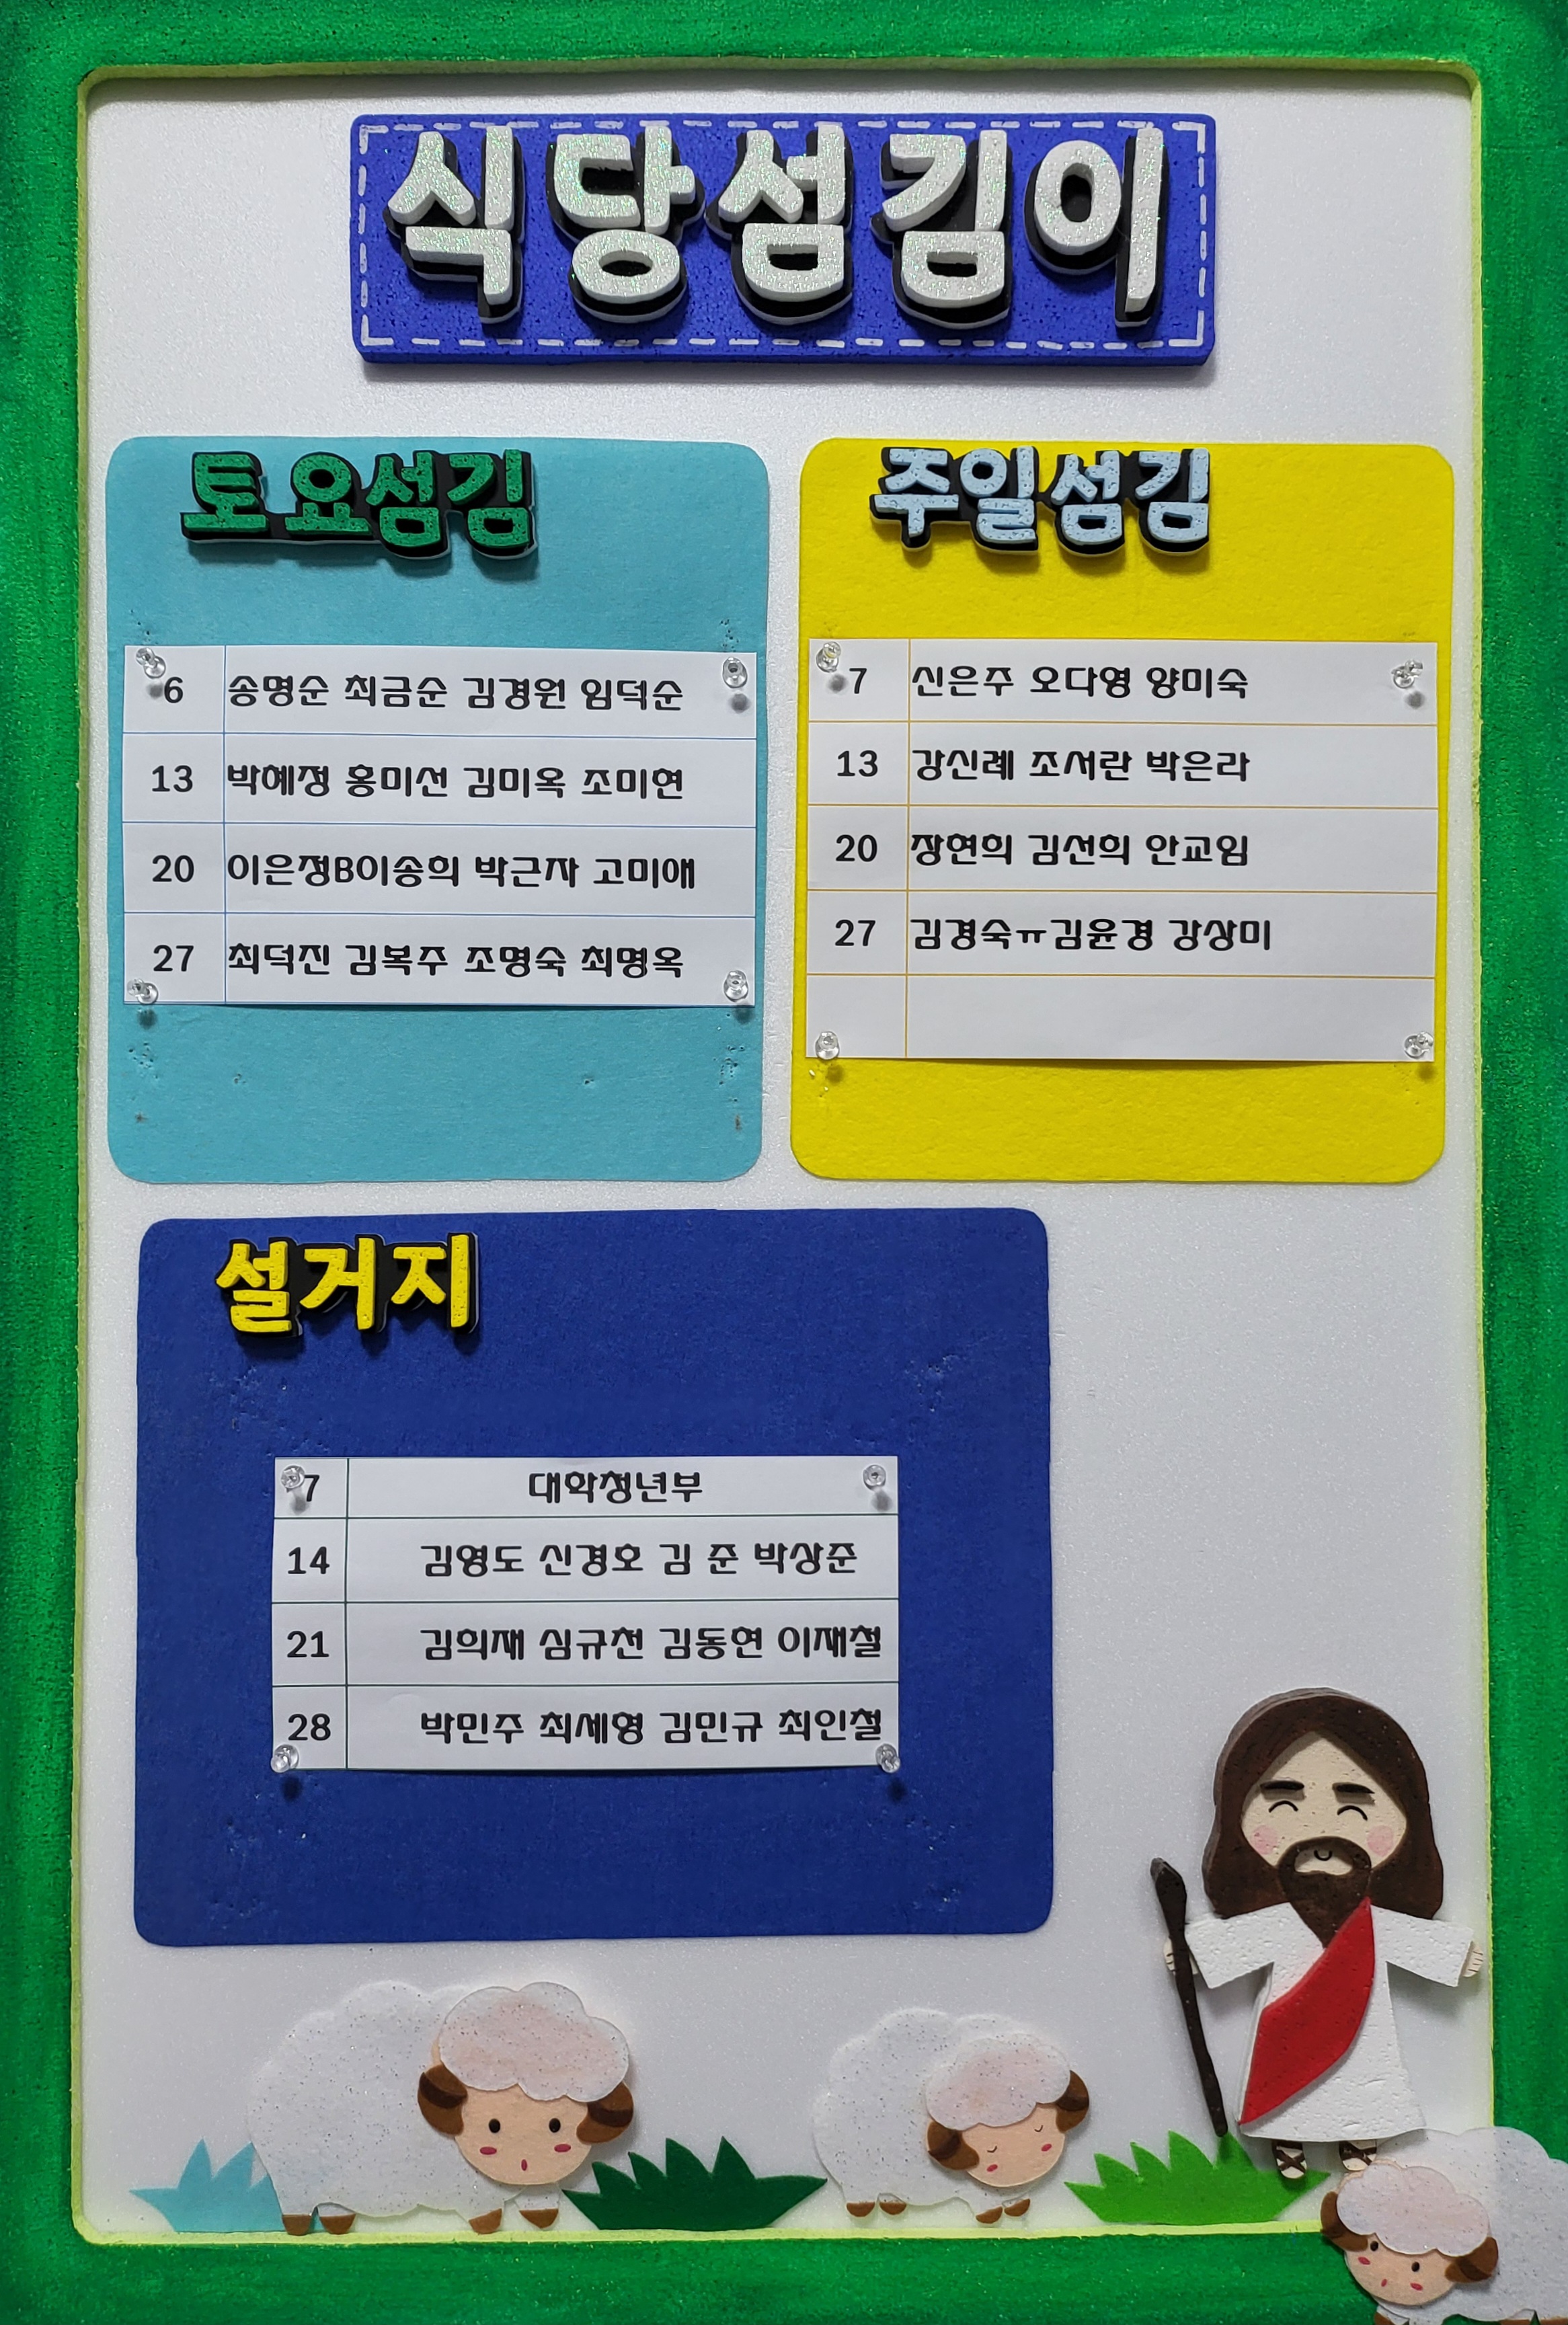 식당섬김이
토요섬김
6 송명순 최금순 김경원 임덕순
13 박혜정 홍미선 김미옥 조미현
20 이은정B이송희 박근자 고미애
27 최덕진 김복주 조명숙 최명옥
주일섬김
7 신은주 오다영 양미숙
13 강신례 조서란 박은라
20 장현희 김선희 안교임
27 김경숙ㅠ김윤경 강상미
설거지
7 대학청년부
14 김영도 신경호 김 준 박상준
21 김희재 심규천 김동현 이재철
28 박민주 최세형 김민규 최인철